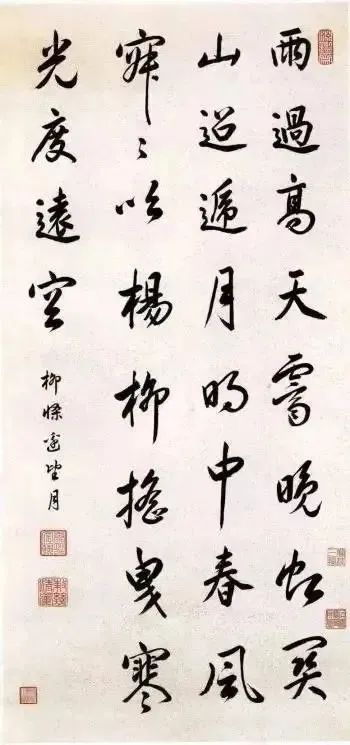 雨過高天霽晚虹關
山迢遞月明中春風
寂々吹楊柳搖曳寒
光度遠空
柳條邊望月